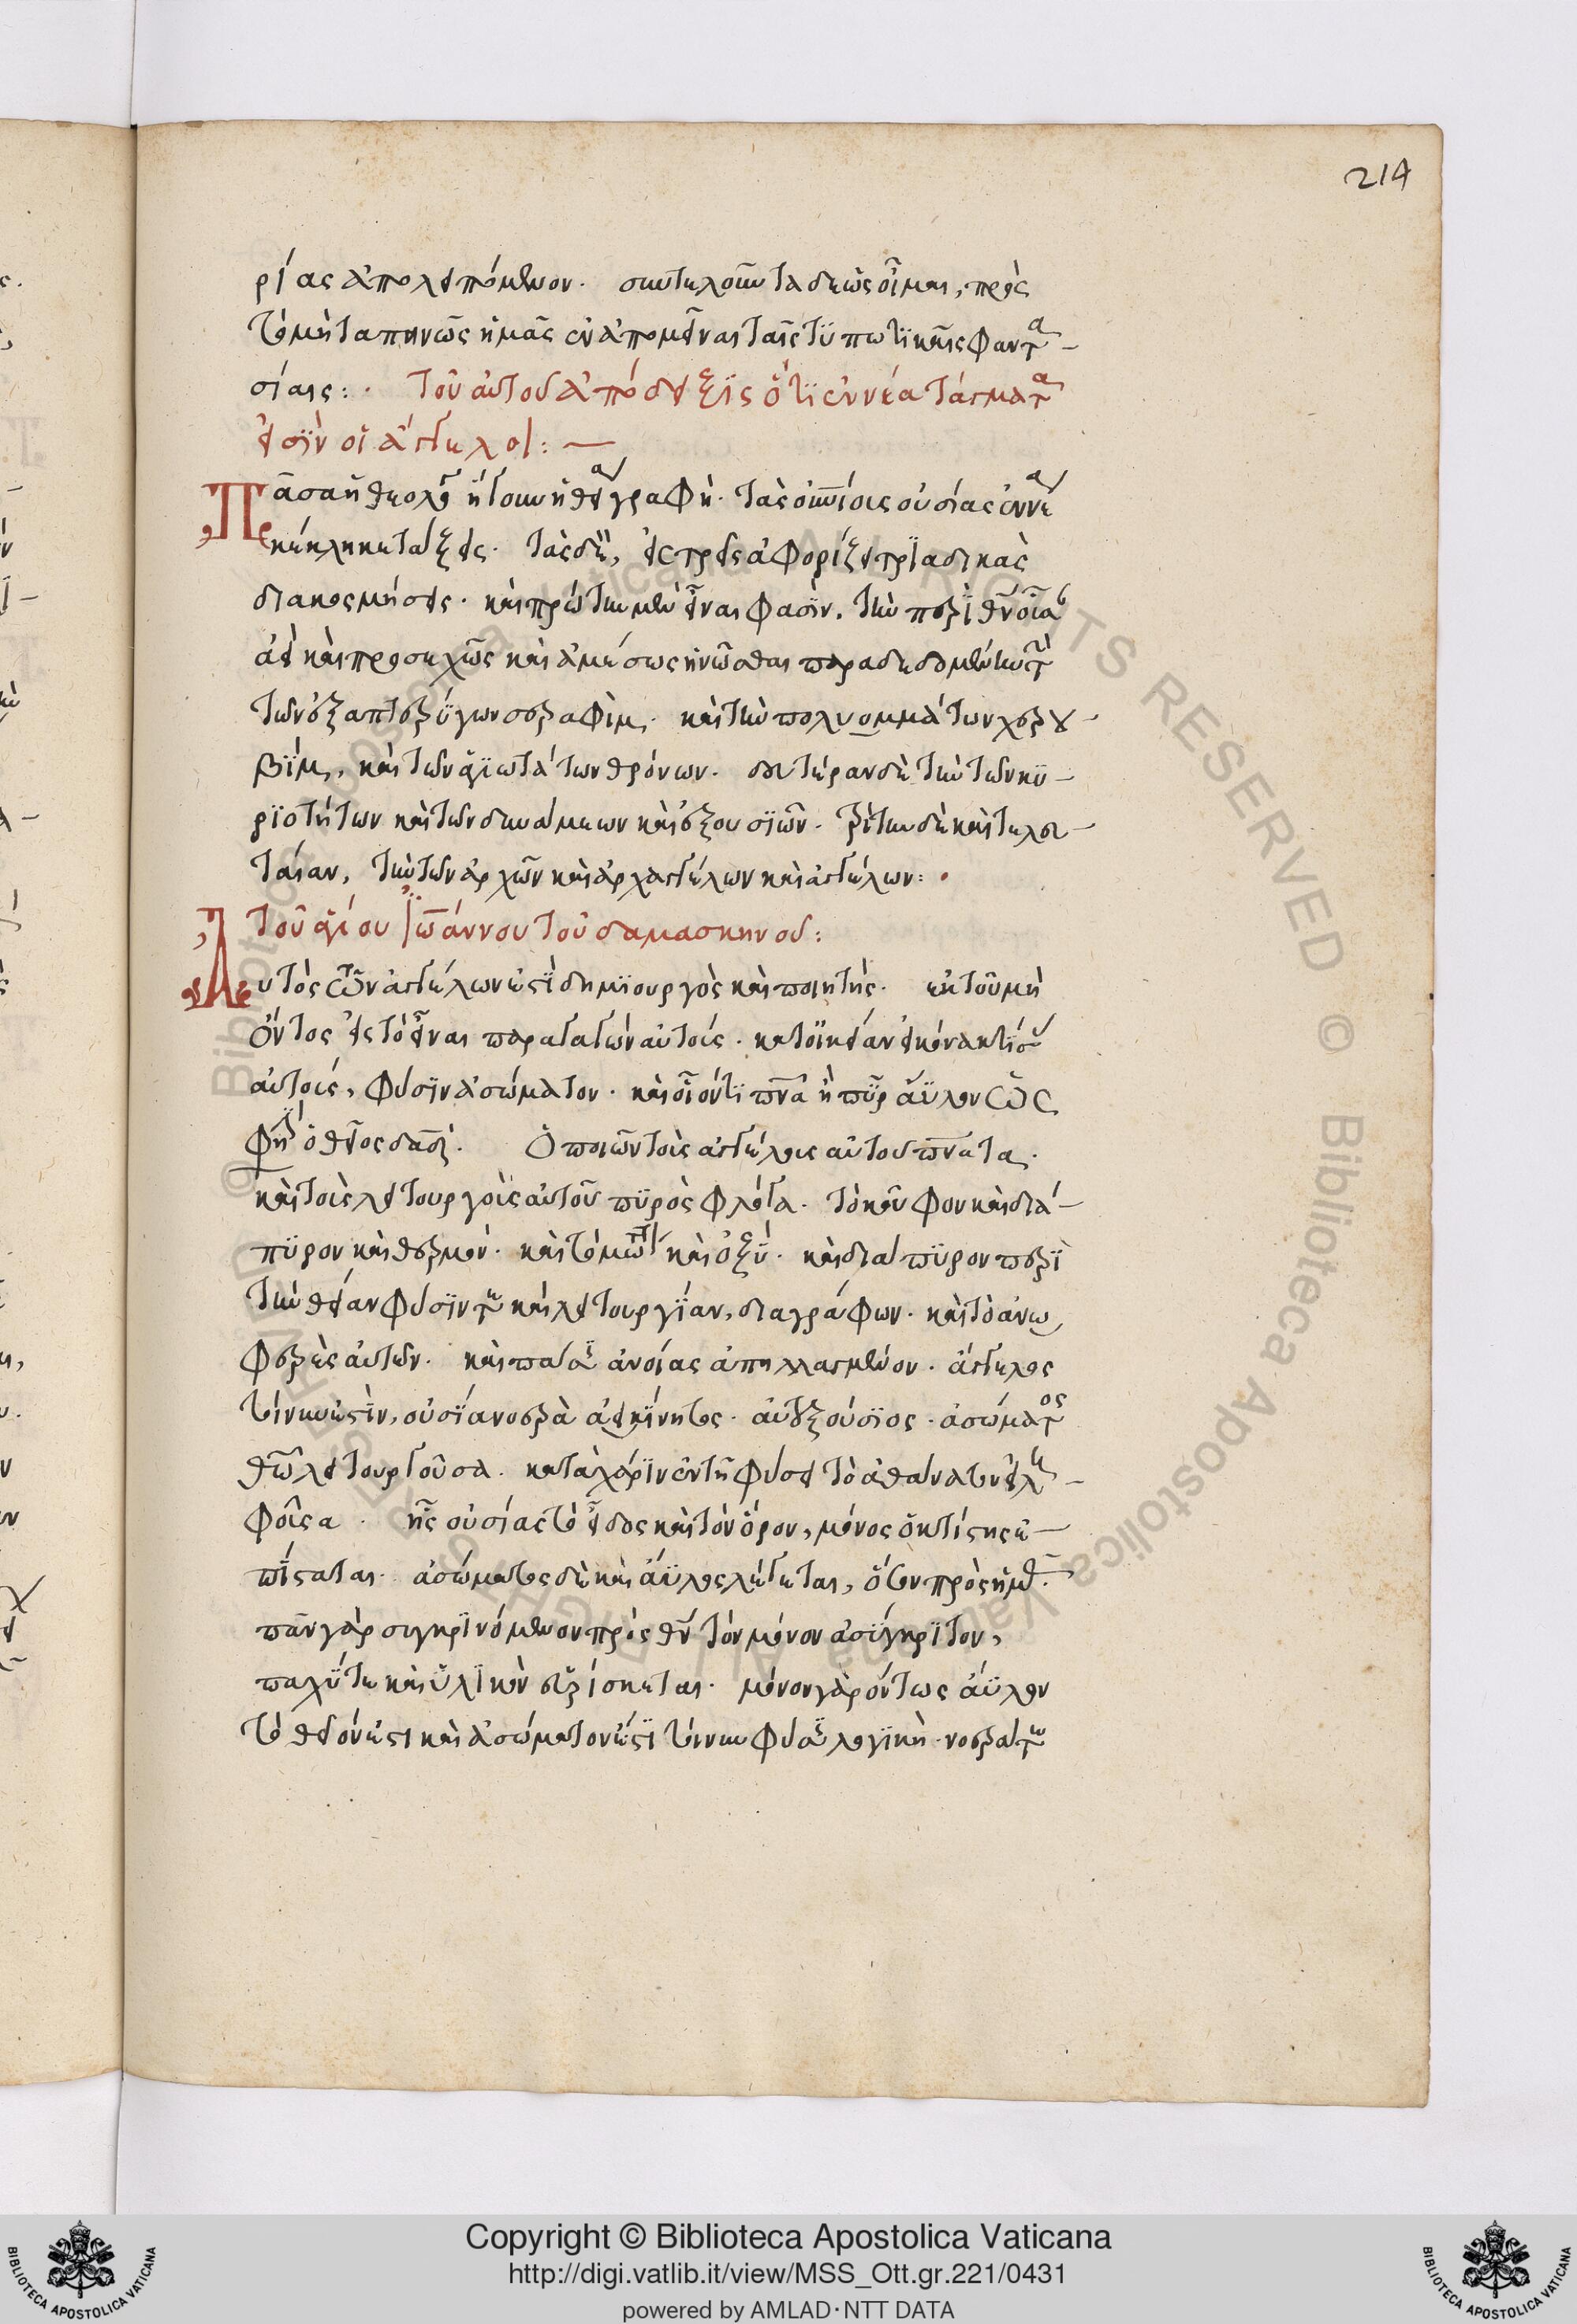 214
ρίας ἀπολειπόμενον. συντελοῦντα δὲ ὡς οἶμαι, πρὸς
τὸ μὴ ταπεινῶς ἡμᾶς ἐναπομεῖναι ταῖς τϋπωτϊκαῖς φαντα-
σίαις: · τοῦ αὐτοῦ ἀπόδειξϊς ὅτϊ ἐννέα τάγματα
εἰσϊν οἱ ἄγγελοι: —
Πᾶσα ἡ θεολογία ἤγουν ἡ θεία γραφὴ. τὰς οὐρανίους οὐσίας ἐννέα
κέκληκε τάξεις. ταύτας δὲ, εἰς τρεῖς ἀφορίζει τρϊαδικὰς
διακοσμήσεις. καὶ πρώτην μὲν εἶναι φασϊν, τὴν περϊ θεὸν οὖσαν
ἀεὶ καὶ προσεχῶς καὶ ἀμέσως ἡνῶσθαι παραδεδομένην τὴν
τῶν ἑξαπτερΰγων σεραφὶμ. καὶ τὴν πολυομμάτων χερου-
βϊμ, καὶ τῶν ἁγϊωτάτων θρόνων. δευτέραν δὲ τὴν τῶν κϋ-
ρϊοτήτων καὶ τῶν δυνάμεων καὶ ἐξουσϊῶν. τρίτην δὲ καὶ τελευ-
ταίαν, τὴν τῶν ἀρχῶν καὶ ἀρχαγγέλων καὶ ἀγγέλων: ·
τοῦ ἁγίου ἰωάννου τοῦ δαμασκηνοῦ:
Αὐτὸς τῶν ἀγγέλων ἐστϊ δημϊουργὸς καὶ ποιητὴς. ἐκ τοῦ μὴ
ὄντος εἰς τὸ εἶναι παραγαγὼν αὐτοὺς. κατ οἰκείαν εἰκόνα κτίσας
αὐτοὺς, φύσϊν ἀσώματον. καὶ οἷον τϊ πνα ἢ πῦρ ἄϋλον ὥς
φησὶν ὁ θεῖος δαδ. Ὁ ποιῶν τοὺς ἀγγέλους αὐτοῦ πνατα.
καὶ τοὺς λειτουργοὺς αὐτοῦ πϋρὸς φλόγα. τὸ κοῦφον καὶ διά-
πϋρον καὶ θερμὸν. καὶ τομώτατον καὶ ὀξΰ. καὶ διάπϋρον περϊ
τὴν θείαν φύσϊν τε καὶ λειτουργϊαν, διαγράφων. καὶ τὸ ἀνω
φερὲς αὐτῶν. καὶ πάσης ἀνοίας ἀπηλλαγμένον. ἄγγελος
τοίνυν ἐστϊν, οὐσϊα νοερὰ ἀεικϊνητος. αὐτεξούσϊος. ἀσώματος
θεῶ λειτουργοῦσα. κατὰ χάρϊν ἐν τῆ φύσει τὸ ἀθάνατον εἰλη-
φοῦσα. ἧς οὐσίας τὸ εἶδος καὶ τὸν ὅρον, μόνος ὁ κτίστης ἐ-
πΐσταται. ἀσώματος δὲ καὶ ἄϋλος λέγεται, ὅσον πρὸς ἡμᾶς.
πᾶν γὰρ συγκρϊνόμενον πρὸς θν τὸν μόνον ἀσΰγκρϊτον,
παχΰ τε καὶ ὑλϊκὸν εὑρίσκεται. μόνον γὰρ ὄντως ἄϋλον
τὸ θεῖον ἐστι καὶ ἀσώματον ἔστϊ τοίνυν φύσις λογϊκὴ. νοερά τε
Copyright © Biblioteca Apostolica Vaticana
http://digi.vatlib.it/view/MSS_Ott.gr.221/0431
powered by AMLAD·NTT DATA